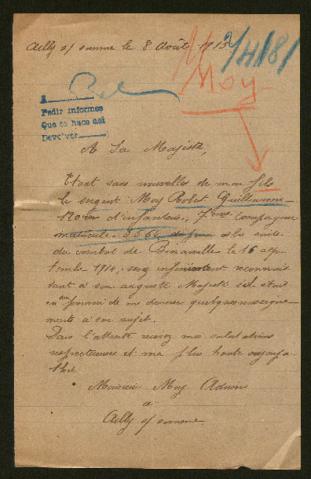 Ailly s/ somme le 8 Août 1915
3/H/81
Moy
A
Pedir informes
Que se hace asi
Devolver
A Sa Majesté,
Etant sans nouvelles de mon fils
le sergent Moy Robert Guillaumin
120 ème d'infanterie, 7ème compagnie
matricule 3364 depuis à la suite
du combat de Binarville le 16 sep
tembre 1914, serez infiniment reconnais
sant à son auguste Majesté s'il était
en pouvoir de me donner quelques renseigne
ments à son sujet.
Dans l'attente recevez mes salutations
respectueuses et ma plus haute
Monsieur Moy
à
Ailly s/ somme